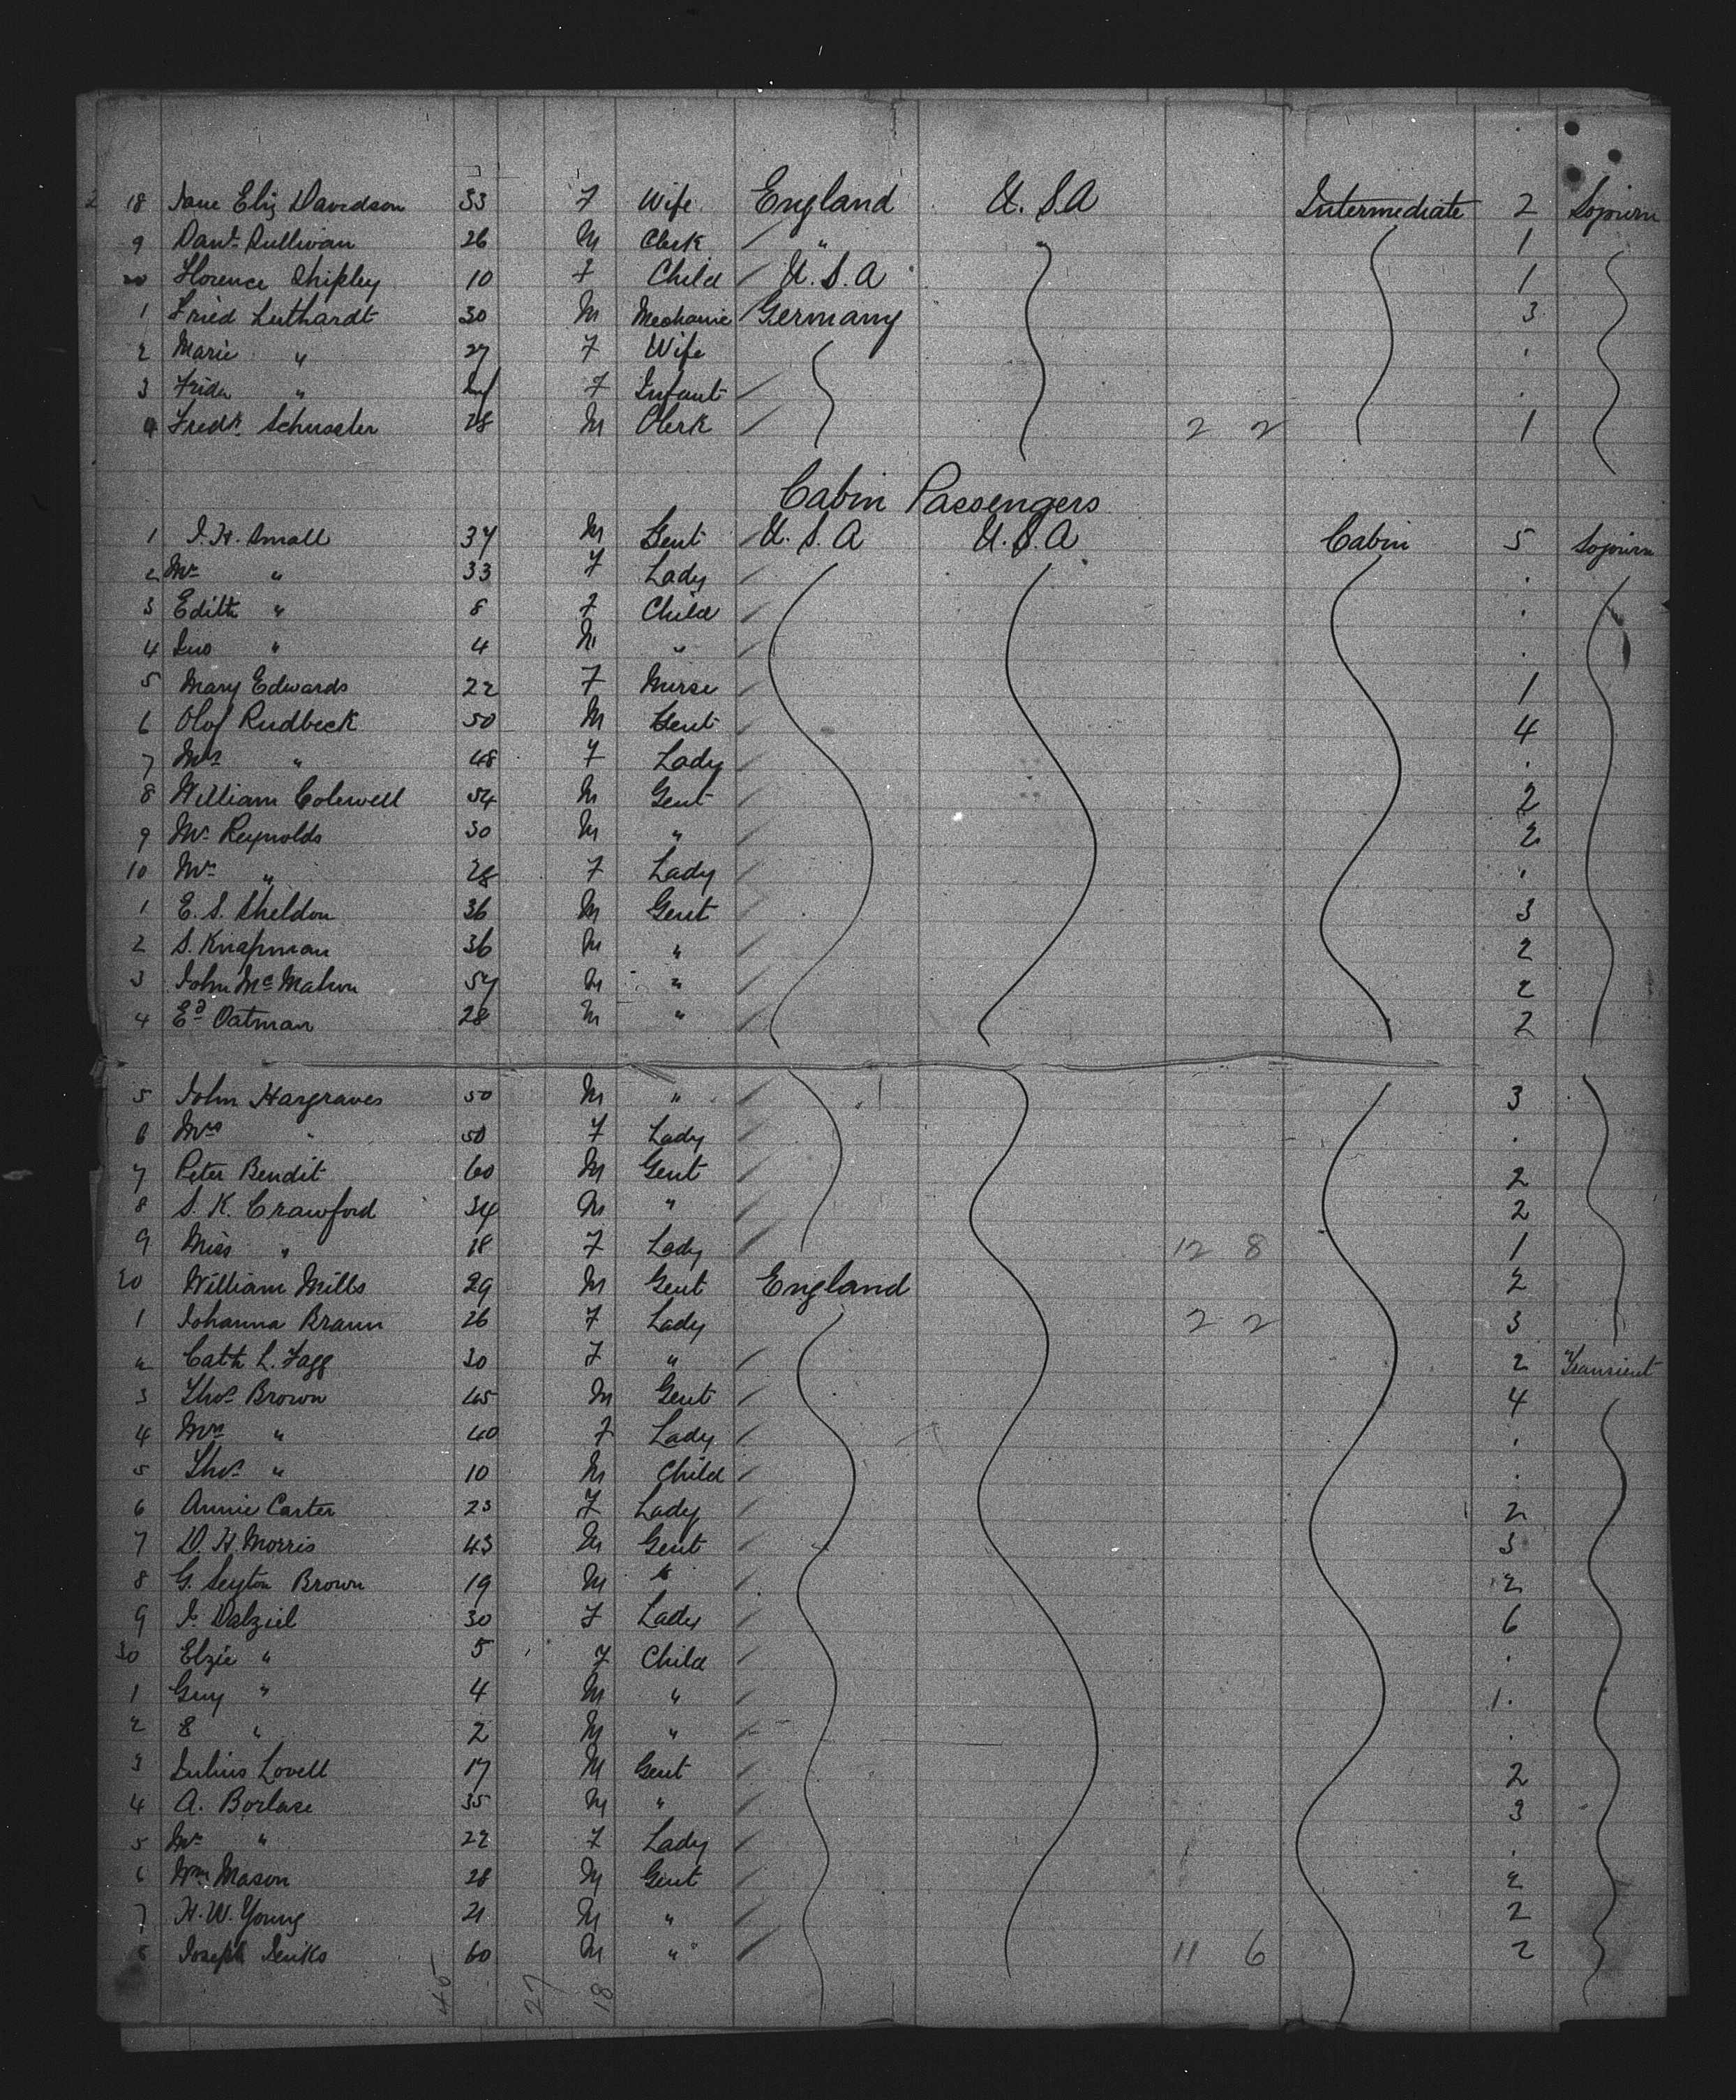 18 Jane Eliz Davidson 33 F Wife England U.S.A Intermediate 2 Sojourn
9 Danl Sullivan 26 M Clerk " 1
20 Florence Shipley 10 F Child U.S.A 1
1 Fried Luthardt 30 M Mechanic Germany 3
2 Marie " 27 F Wife
3 Frida " Inf F Infant
4 Fredk Schussler 28 M Clerk 2 2 1
Cabin Passengers
1 J.H. Small 37 M Gent U.S.A U.S.A Cabin 5 Sojourn
2 Mrs " 33 F Lady
3 Edith " 8 F Child
4 Jno " 4 M "
5 Mary Edwards 22 F Nurse 1
6 Olof Rudbeck 50 M Gent 4
7 Mrs " 48 F Lady
8 William Colewell 54 M Gent 2
9 Mr Reynolds 30 M " 2
10 Mrs " 28 F Lady
1 E. S. Sheldon 36 M Gent 3
2 S. Knapman 36 M " 2
3 John McMahon 57 M " 2
4 Ed Oatman 28 M " 2
5 John Hargraves 50 M " 3
6 Mrs " 50 F Lady
7 Peter Bendit 60 M Gent 2
8 S. K. Crawford 34 M " 2
9 Miss " 18 F Lady 12 8 1
20 William Mills 29 M Gent England 2
1 Johanna Braun 26 F Lady 2 2 3
2 Cath L. Fagg 30 F " 2 Transient
3 Thos Brown 45 M Gent 4
4 Mrs " 40 F Lady
5 Thos " 10 M Child
6 Annie Carter 23 F Lady 2
7 D. H. Morris 43 M Gent 3
8 G. Seyton Brown 19 M " 2
9 J. Dalziel 30 F Lady 6
30 Elzie " 5 F Child
1 Guy " 4 M " 1
2 8 " 2 M "
3 Julius Lovell 17 M Gent 2
4 A. Borlase 35 M " 3
5 Mrs " 22 F Lady
6 Wm Mason 28 M Gent 2
7 H. W. Young 21 M " 2
8 Joseph Jenks 60 M " 11 6 2
45 27 18